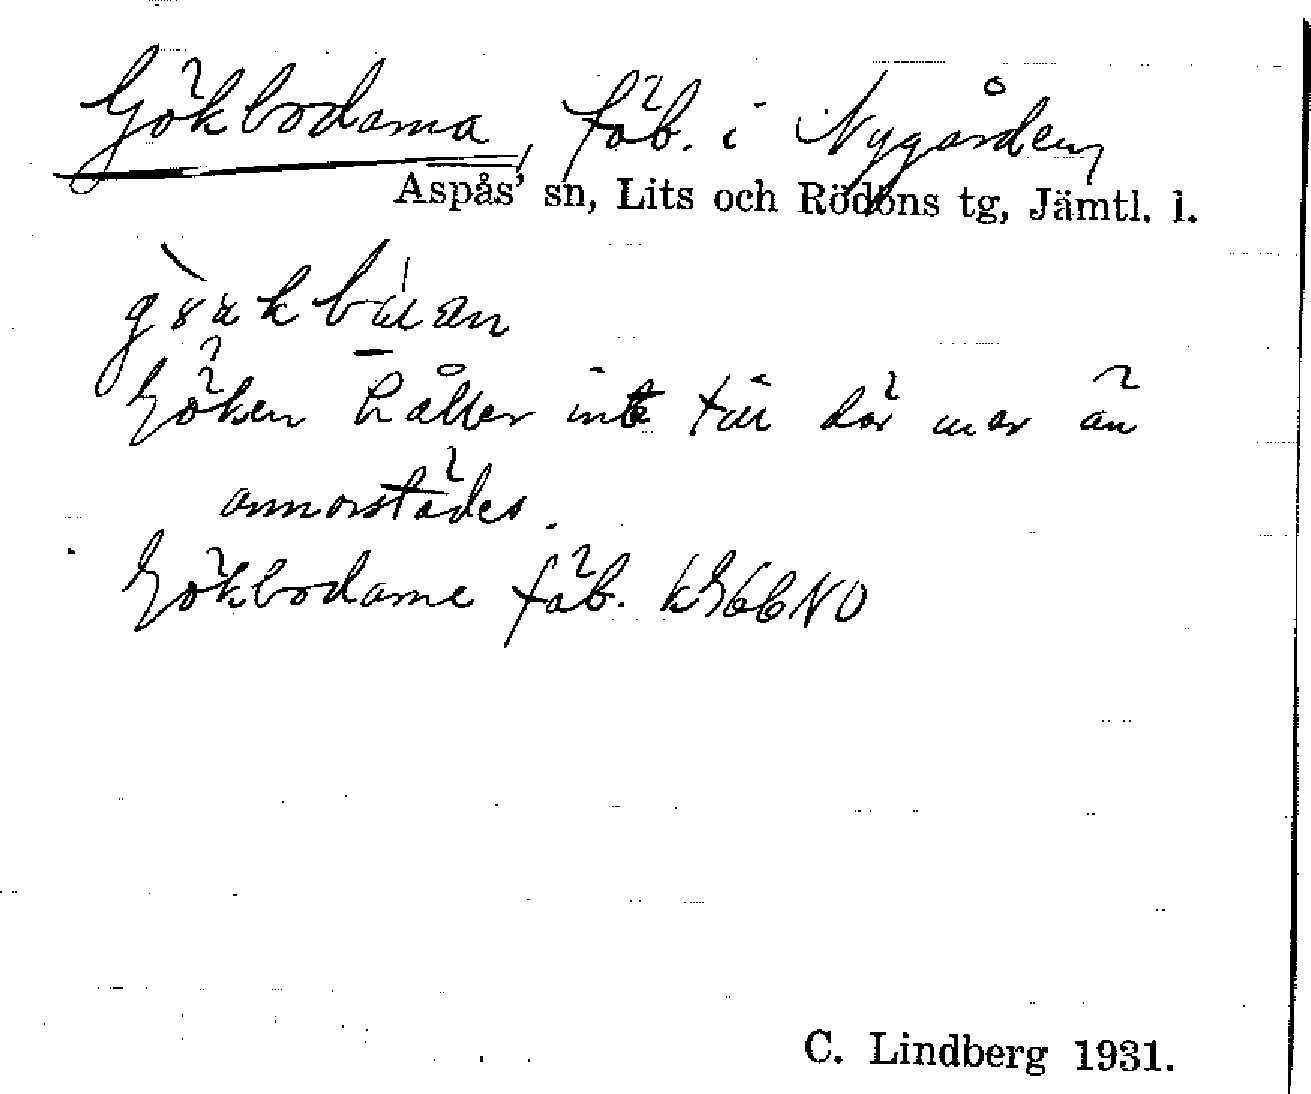 Gökbodarna, fäb. i Nygården,
Aspås' sn, Lits och Rödöns tg, Jämtl. l.
Göken håller inte till där mer än
annorstädes.
Gökbodarne fäb.
C. Lindberg 1931.